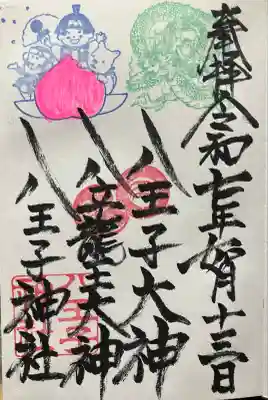 奉拝 令和七年一月十三日
八王子大神
八大龍王大神
八王子神社